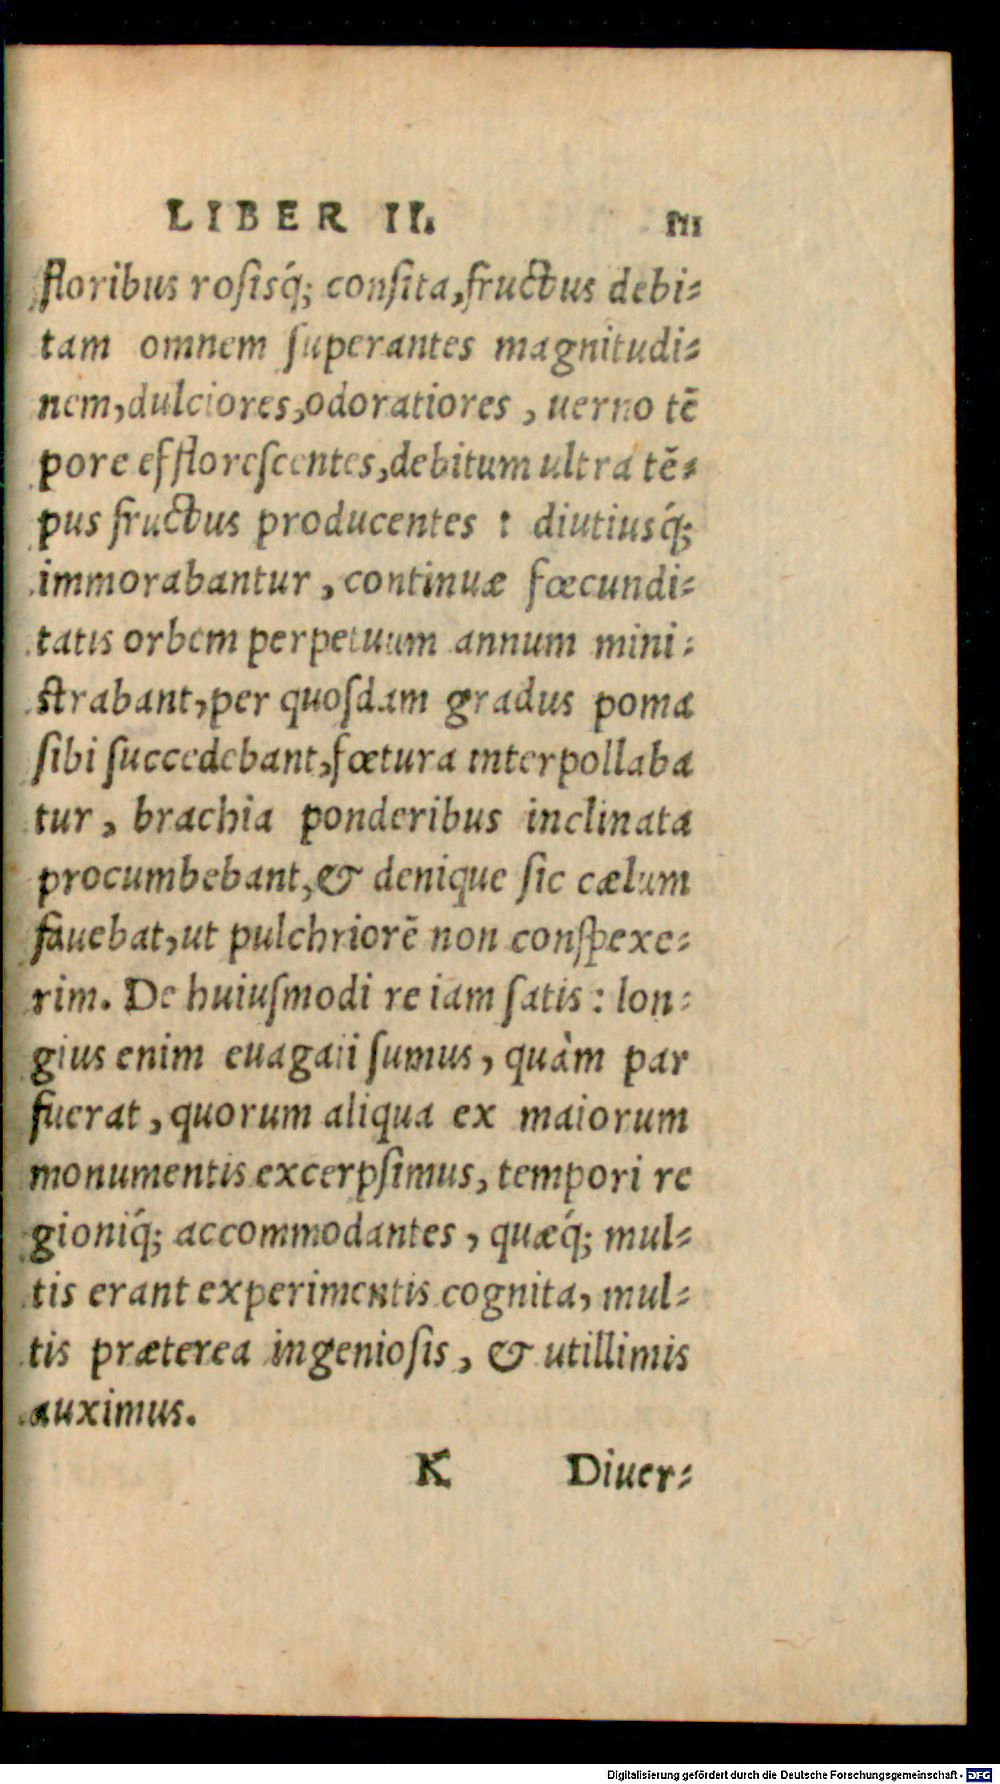 LIBER II. 111
floribus rosisq́; consita,fructus debi-
tam omnem ſuperantes magnitudi-
nem,dulciores,odoratiores, uerno tē
pore efflorescentes,debitum ultra tē-
pus fructus producentes : diutiusq́;
immorabantur, continuæ fœcundi-
tatis orbem perpetuum annum mini-
strabant,per quoſdam gradus poma
ſibi ſuccedebant,fœtura interpollaba
tur, brachia ponderibus inclinata
procumbebant,& denique ſic cælum
fauebat,ut pulchriorē non conſpexe-
rim. De huiuſmodi re iam ſatis : lon-
gius enim euagati ſumus, quàm par
fuerat, quorum aliqua ex maiorum
monumentis excerpſimus, tempori re
gioniq́; accommodantes, quæq́; mul-
tis erant experimentis cognita, mul-
tis præterea ingenioſis, & utillimis
auximus.
K Diuer-
Digitalisierung gefördert durch die Deutsche Forschungsgemeinschaft - DFG